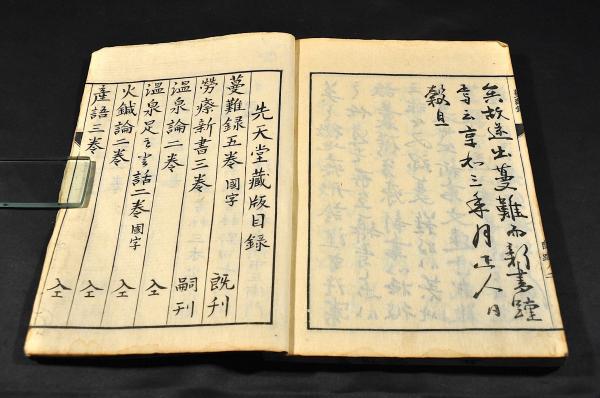 矣故遂出蔓難而新書踵
云享和三年月正人日
穀旦
先天堂藏版目録
蔓難録五巻 國字 既刊
勞瘵新書三巻 嗣刊
溫泉論二巻 仝
溫泉足 話二巻 國字 仝
火鍼論二巻 仝
產語三巻 仝